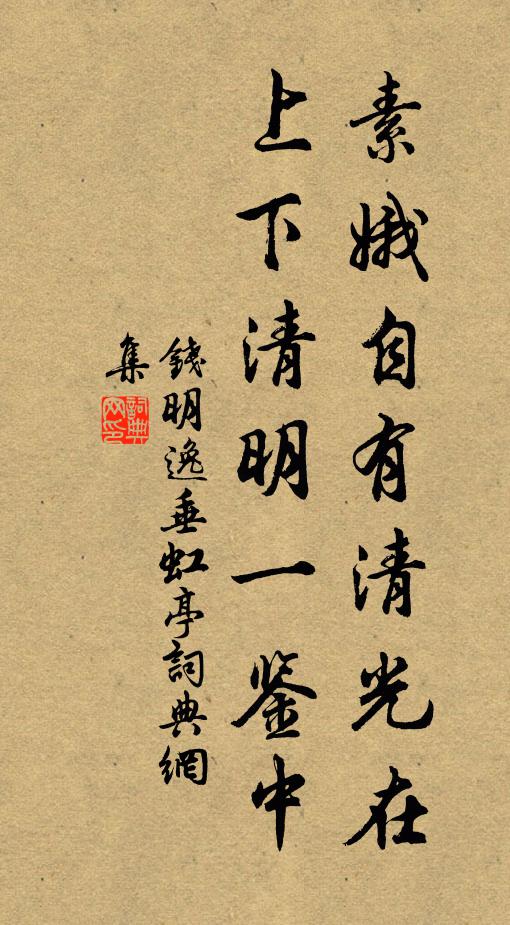 素娥自有清光在
上下清明一鉴中
錢明逸垂虹亭詞典網
集
詞典網印